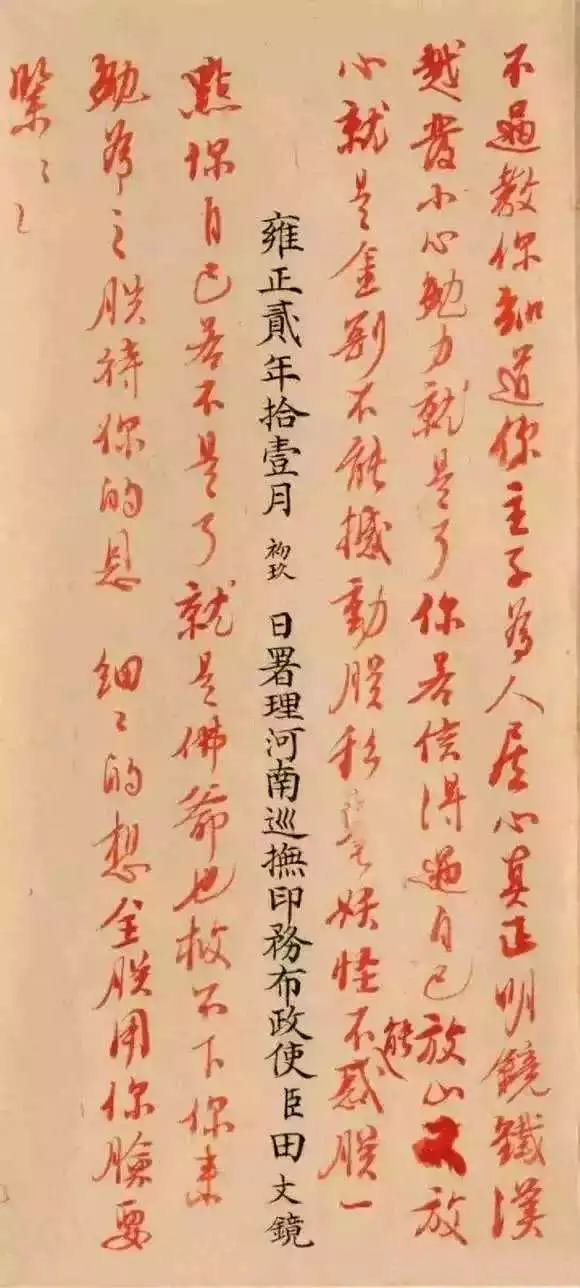 不過教你知道你主子為人居心真正明鏡鐵漢
越發小心勉力就是了你若信得過自己放心又放
心就是金剛不能撼動朕絲毫妖怪不能惑朕一
雍正貳年拾壹月初玖日署理河南巡撫印務布政使臣田文鏡
點你自己若不是了就是佛爺也救不下你來
勉為之朕待你的恩 細々的想全朕用你臉要
緊々々